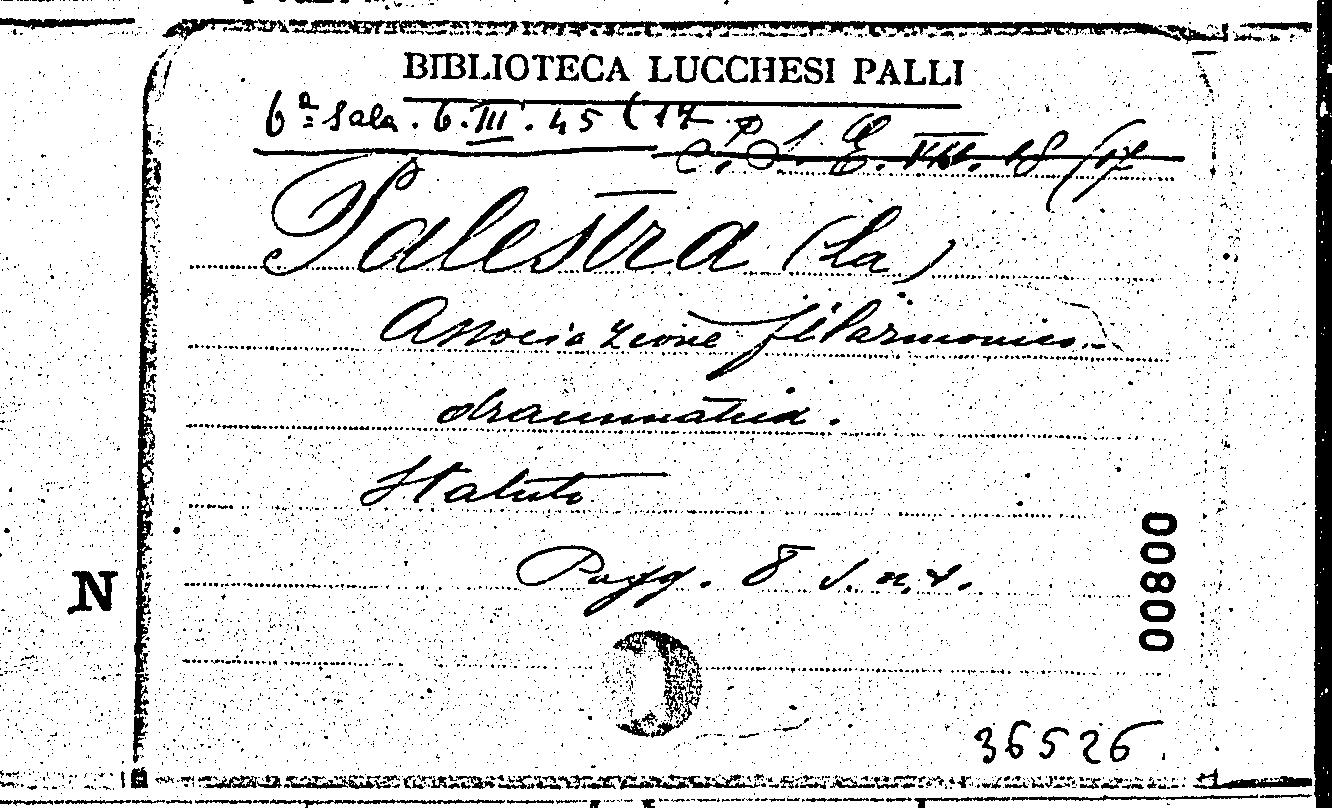 BIBLIOTECA LUCCHESI PALLI
6ª Sala. 6.III.45 (17
VIII. 18 (17
Palestra (La)
Associazione filarmonico-
drammatica.
Statuto
Pagg. 8 s.n.t.
N
00800
36526